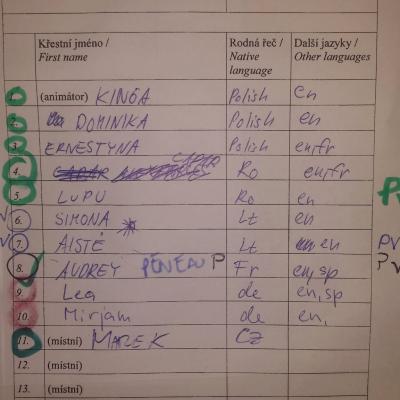 Křestní jméno / Rodná řeč / Další jazyky /
First name Native language Other languages
1. (animátor) KINGA Polish en
2. DOMINIKA Polish en
3. ERNESTYNA Polish en/fr
4. Ro en/fr
5. LUPU Ro en
6. SIMONA Lt en
7. AISTĖ Lt en PV
8. AUDREY P Fr en, sp ? V
9. Lea de en, sp
10. Mirjam de en,
11. (místní) MAREK CZ
12. (místní)
13. (místní)